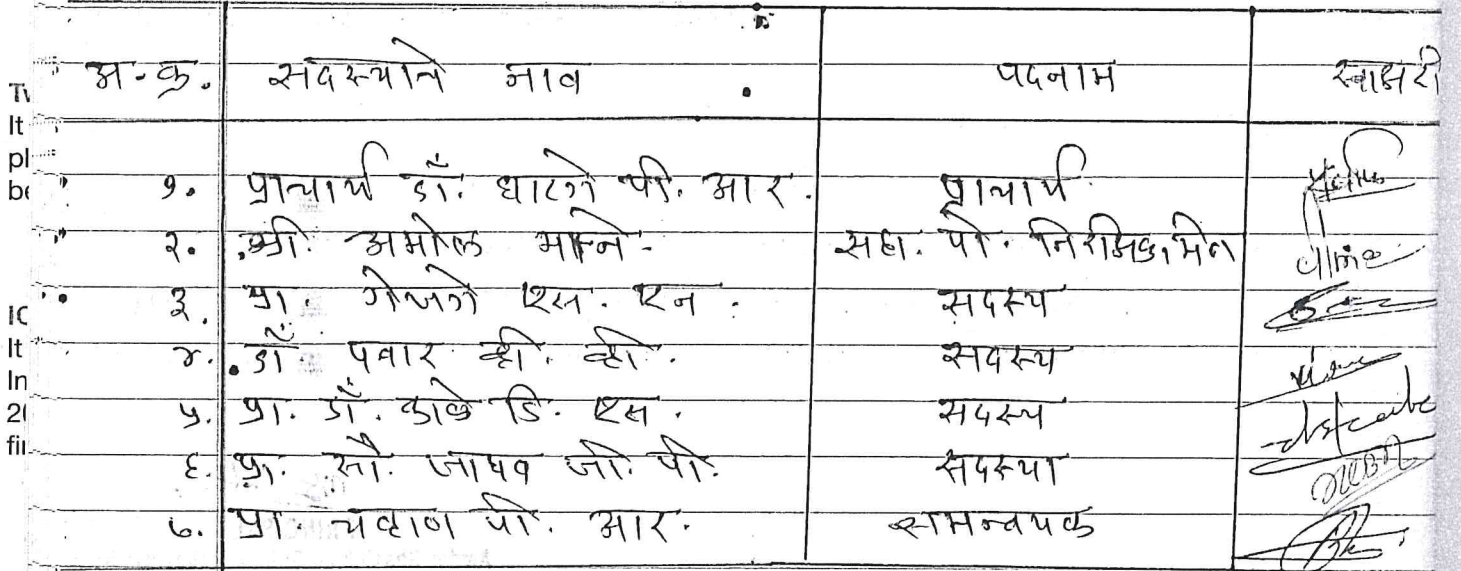 अ.क्र. सदस्याचे नाव पदनाम स्वाक्षरी
१. प्राचार्य डॉ. घाटगे पी. आर. प्राचार्य
२. श्री. अमोल माने सहा. पो. निरीक्षक,
३. प्रा. गेजगे एस. एन. सदस्य
४. डॉ. पवार व्ही. व्ही. सदस्य
५. प्रा. डॉ. काळे डि. एस. सदस्य
६. प्रा. सौ. जाधव जी. पी. सदस्या
७. प्रा. चव्हाण पी. आर. समन्वयक